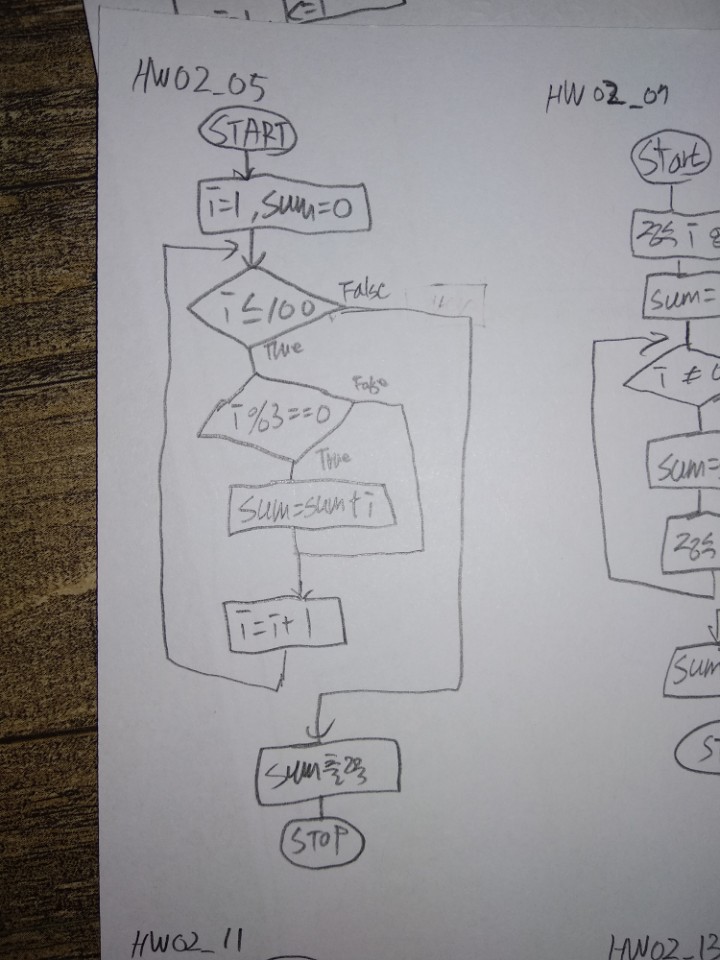 HW02_05
START
i=1, sum=0
i≤100
False
True
i%3==0
False
True
sum=sum+i
i=i+1
sum출력
STOP
HW02_07
Start
정수 i
sum=
i ≠ 0
sum=
정수
sum
ST
HW02_11
HW02_13